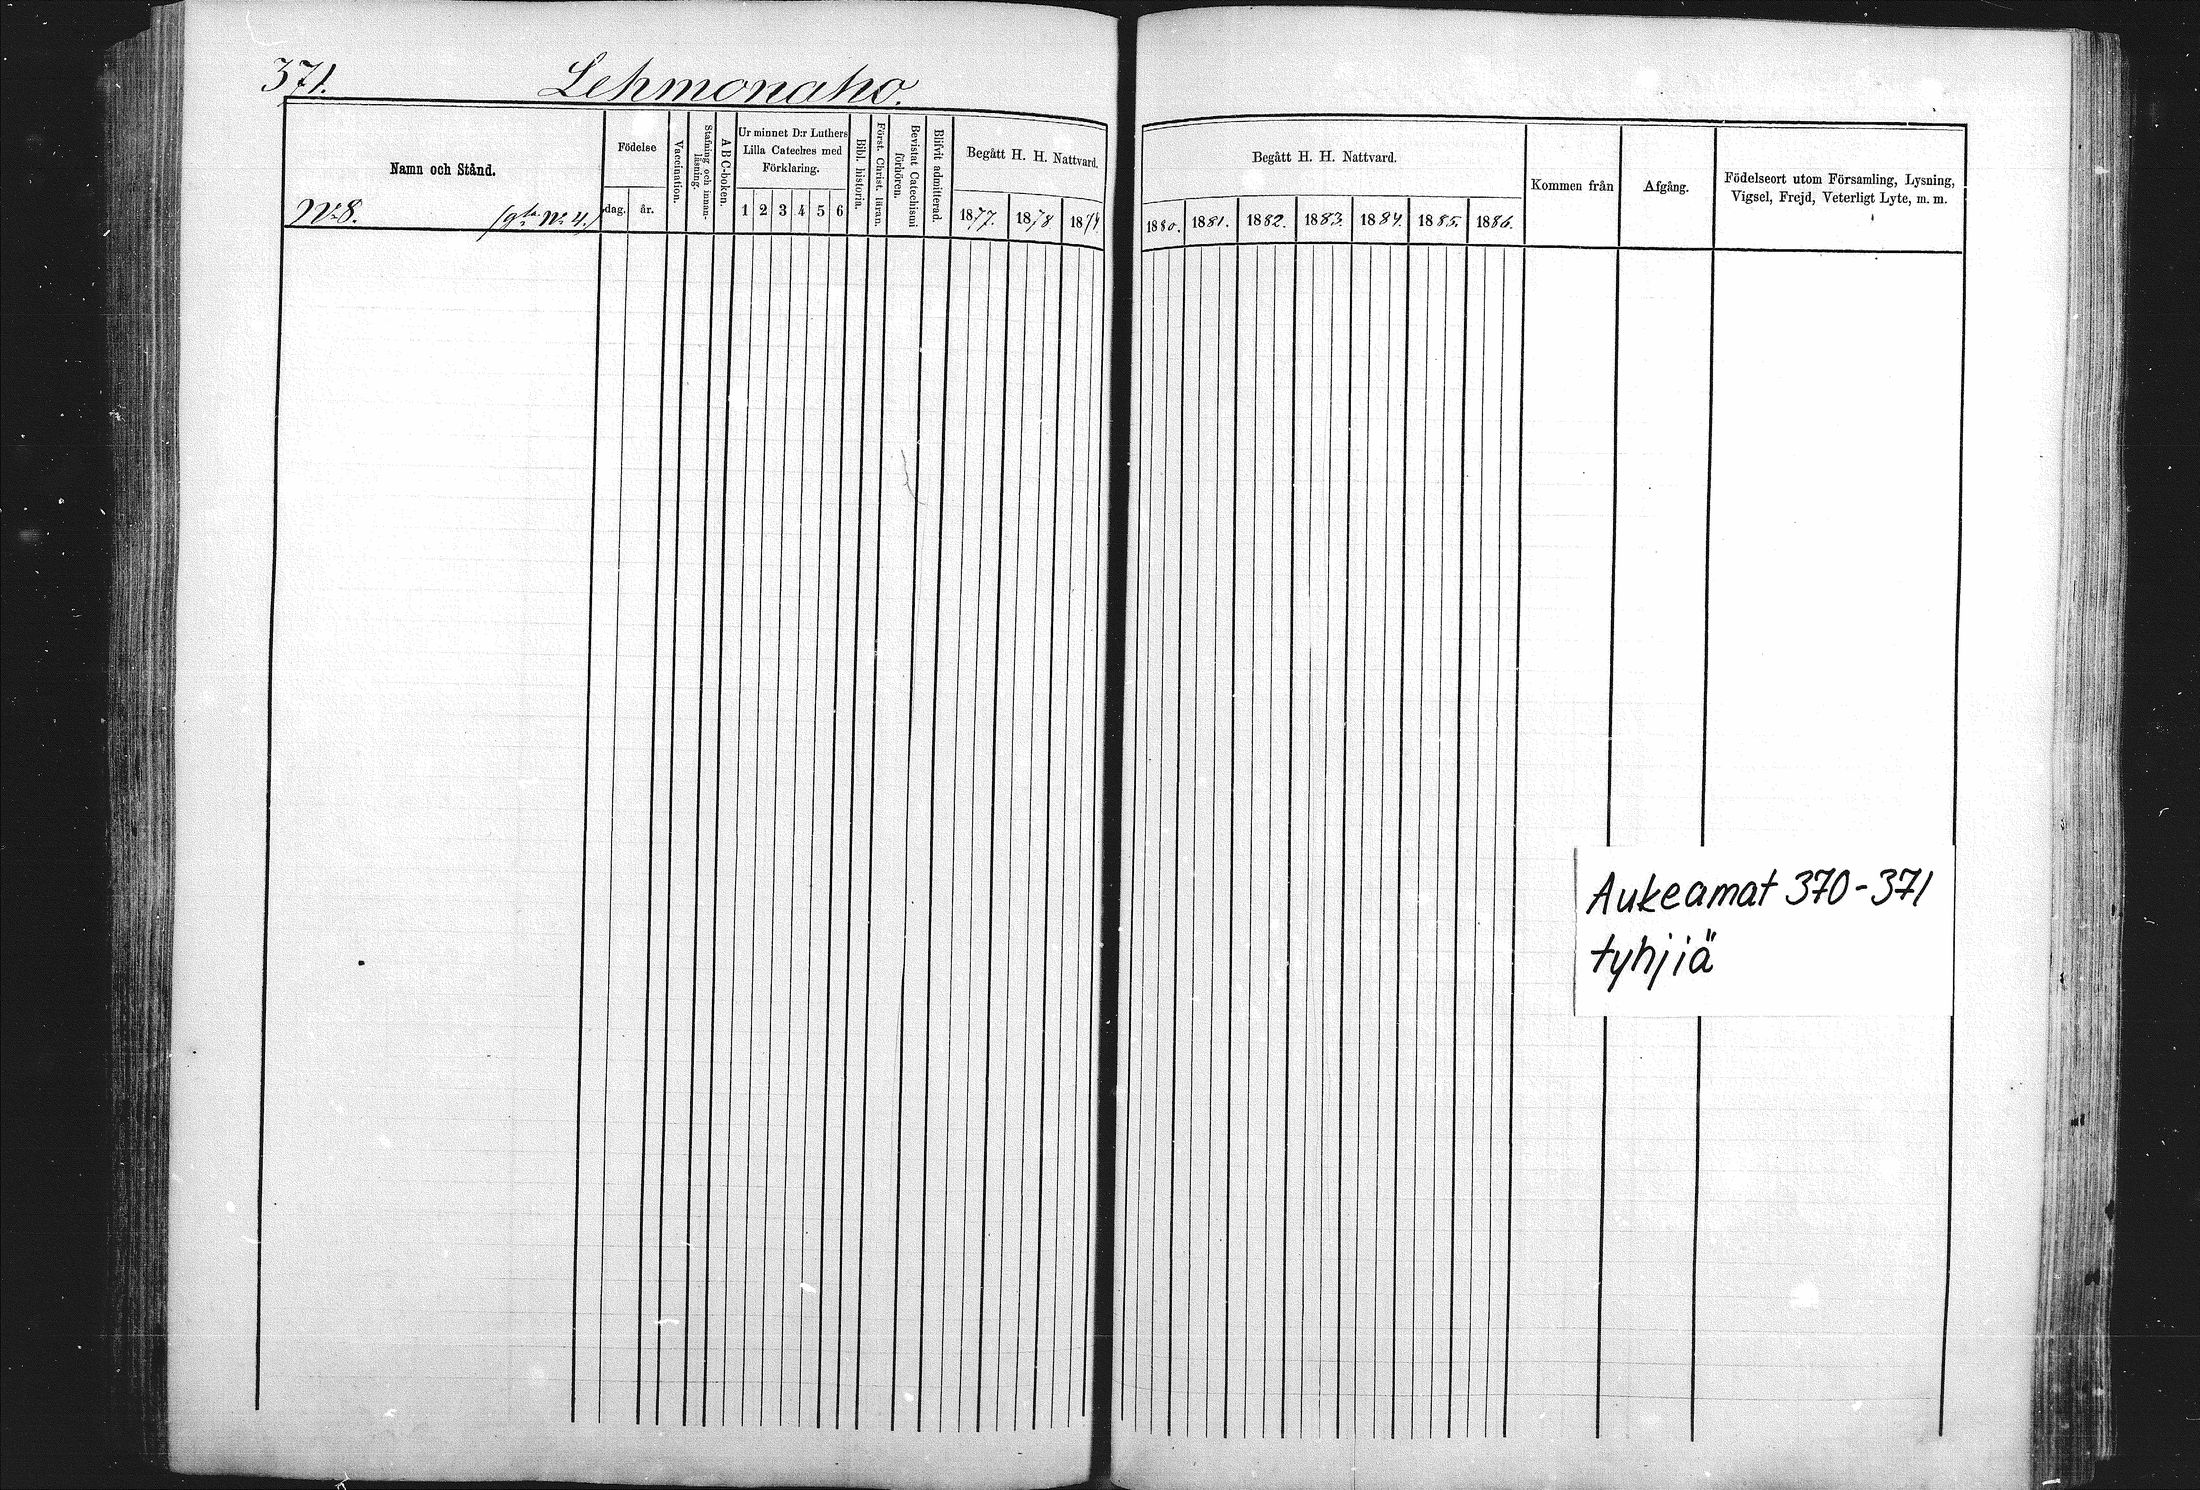 371.
Lehmonaho.
Namn och Stånd.
No 8.
(gla No 4.)
Födelse
dag.
år.
Vaccination.
Stafning och innan-
läsning.
ABC-boken.
Ur minnet D:r Luthers
Lilla Cateches med
Förklaring.
1 2 3 4 5 6
Bibl. historia.
Först. Christ. läran.
Bevistat Catechismi
förhören.
Blifvit admitterad.
Begått H. H. Nattvard.
1877. 1878 1879
Begått H. H. Nattvard.
1880. 1881. 1882. 1883. 1884. 1885. 1886.
Kommen från
Afgång.
Födelseort utom Församling, Lysning,
Vigsel, Frejd, Veterligt Lyte, m. m.
Aukeamat 370-371
tyhjiä